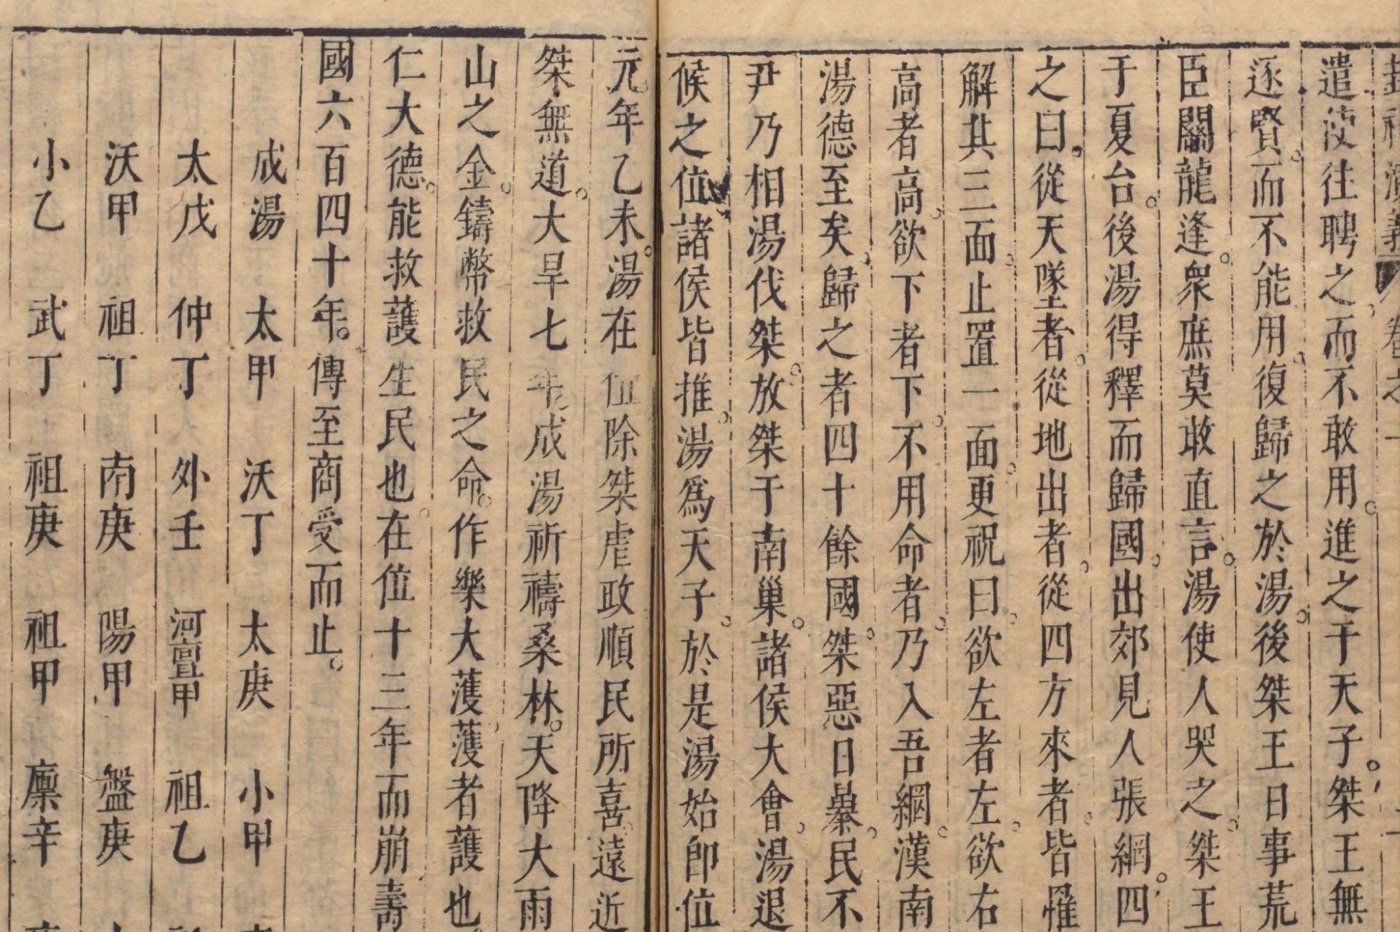 封神演義 卷之一
遣使往聘之而不敢用進之于天子桀王無
逐賢而不能用復歸之於湯後桀王日事荒
臣關龍逢衆庶莫敢直言湯使人哭之桀王
于夏台後湯得釋而歸國出郊見人張網四
之曰從天墜者從地出者從四方來者皆罹
解其三面止置一面更祝曰欲左者左欲右
高者高欲下者下不用命者乃入吾網漢南
湯德至矣歸之者四十餘國桀惡日暴民不
尹乃相湯伐桀放桀于南巢諸侯大會湯退
候之位諸侯皆推湯爲天子於是湯始卽位
元年乙未湯在位除桀虐政順民所喜遠近
桀無道大旱七年成湯祈禱桑林天降大雨
山之金鑄幣救民之命作樂大濩濩者護也
仁大德能救護生民也在位十三年而崩壽
國六百四十年傳至商受而止
成湯 太甲 沃丁 太庚 小甲
太戊 仲丁 外壬 河亶甲 祖乙
沃甲 祖丁 南庚 陽甲 盤庚
小乙 武丁 祖庚 祖甲 廪辛